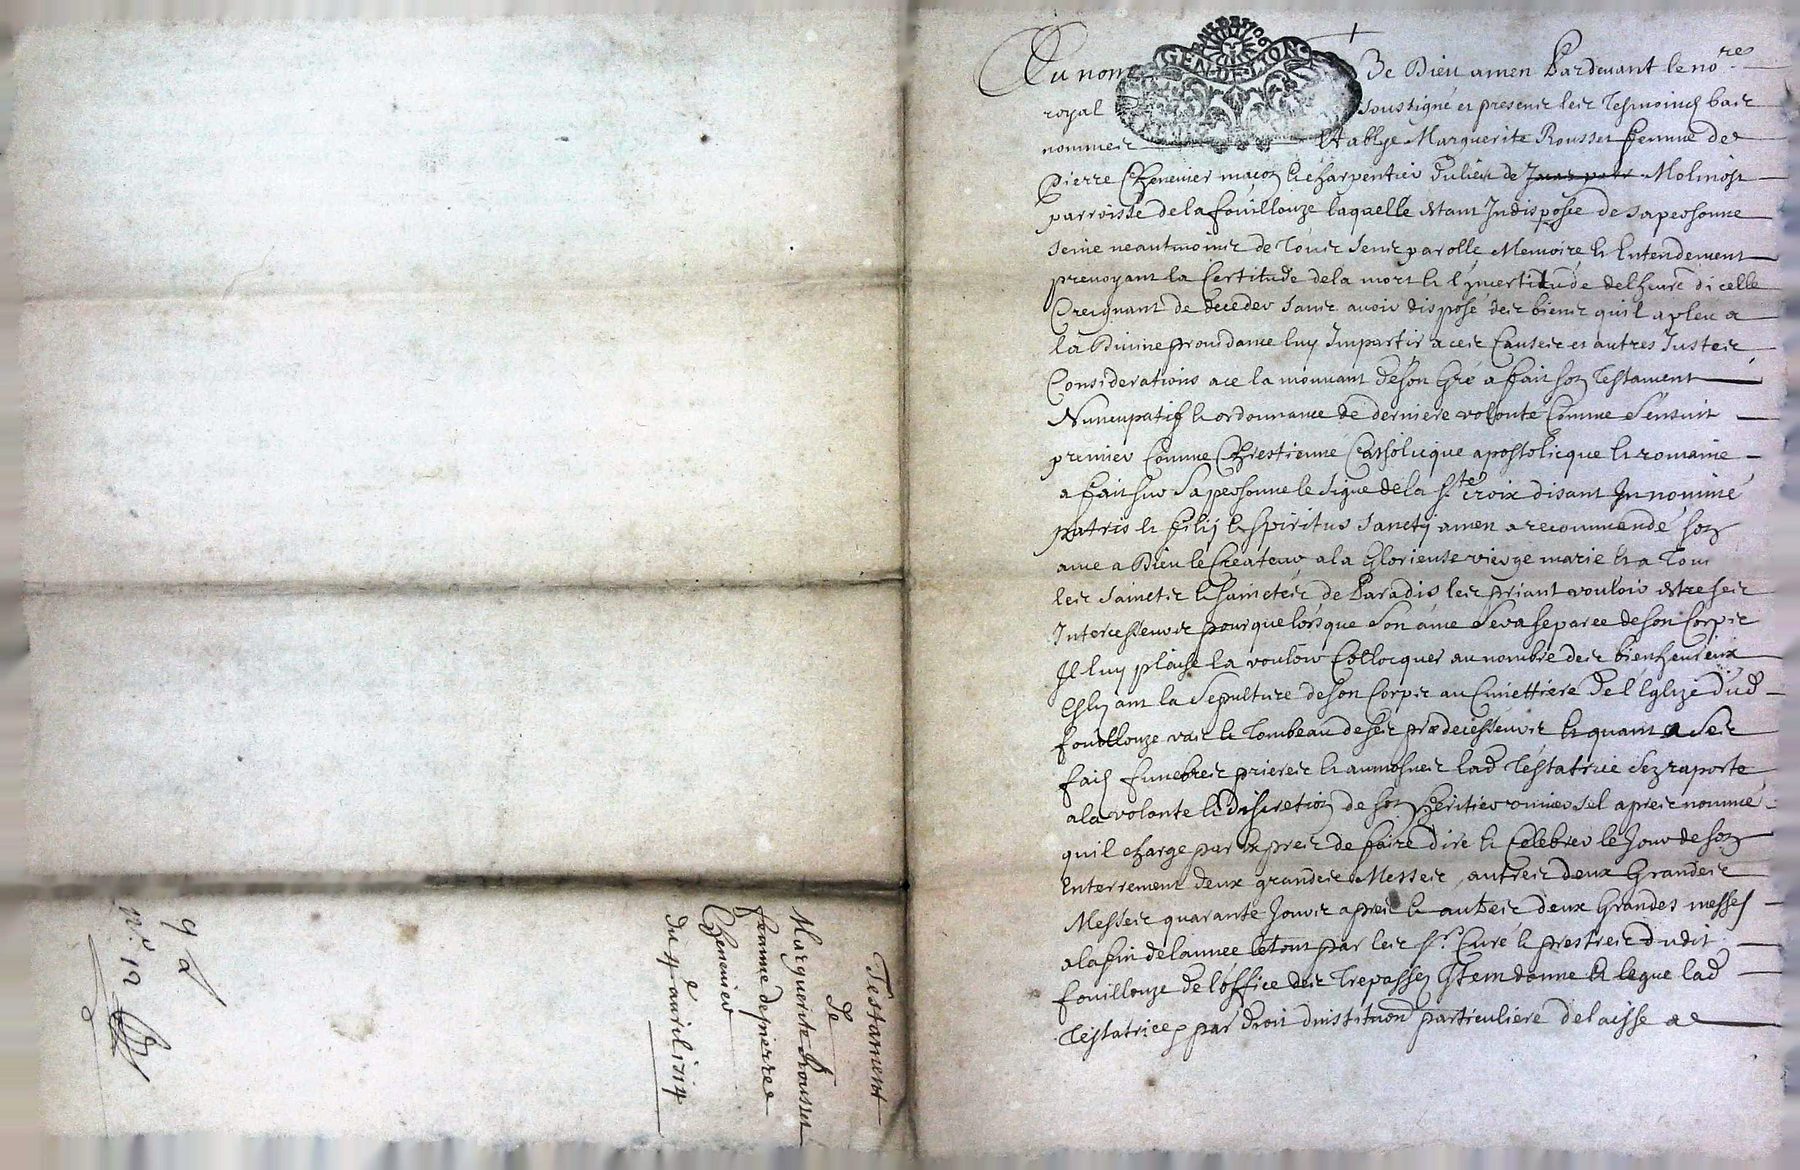 Au nom De Dieu amen Pardevant le no.re
royal soussigné et presents les Tesmoings bas
nommes Establye Marguerite Rousset femme de
Pierre Chenevier macon et charpentier du lieu de Molinost
parroisse de la fouillouze laquelle estant Indisposée de sa personne
seine neantmoings de tous sens parolle Memoire et Entendement
prevoyant la Certitude de la mort et l'jncertitude de l'heure dicelle
Creignant de decedder sans avoir disposé des biens quil a pleu a
la Divine providance luy Impartir a ces Causes et autres Justes
Considerations a ce la mouvant de son Gré a fait son Testament
Nuncupatif et ordonnance de derniere volonté Comme sensuit
premier Comme Chrestienne Catholicque apostolicque et romaine
a fait sur sa personne le signe de la S.te croix disant Jn nomine
patris et filij et spiritus sanctij amen a recommandé son
ame a Dieu le Createur a la Glorieuse vierge marie et a Tous
les saincts et sainctes de Paradis les priant vouloir estre ses
Intercesseurs pour que lorsque son ame sera separee de son Corps
Il luy plaise la vouloir Collocquer au nombre des bienheureux
Eslizant la sepulture de son Corps au Cimettiere de l'Eglize dud
fouillouze vas et Tombeau de ses prædecesseurs et quant a ses
fais funebres prieres et aumosnes lad Testatrice sen raporte
a la volonte et discretion de son heritier universel apres nommé
quil charge par expres de faire dire et Celebrer le Jour de son
Enterrement deux grandes Messes autres deux Grandes
Messes quarante Jours apres et autres deux Grandes messes
a la fin de lannee le tout par les S.rs Curé et prestres dudit
fouillouze de l'office des Trepasses Jtem donne et legue lad
Testatrice par droit d'institution particuliere delaisse a
Testament
de
Marguerite Rousset
femme de pierre
Chenevier
du 4 avril 1714
n.o 12
GEN·DE·LION